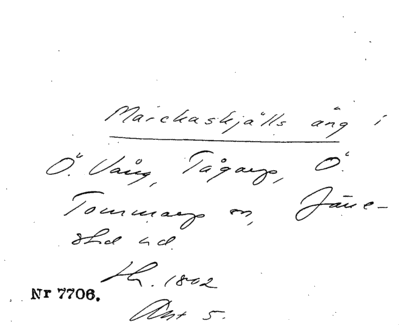 Marckaskjälls äng i
Ö. Vång, Tågarp, Ö.
Tommarp sn, Järre-
stad hd.
Hr. 1802
Ant 5.
Nr 7706.